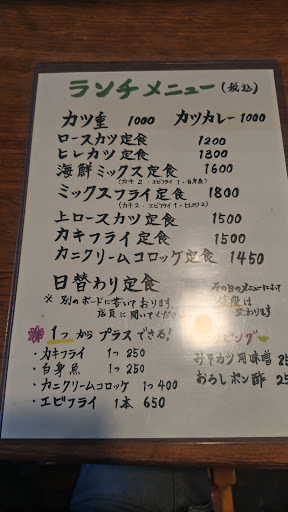 ランチメニュー(税込)
カツ重 1000 カツカレー 1000
ロースカツ定食 1200
ヒレカツ定食 1300
海鮮ミックス定食 1600
(カキ2・エビフライ1・白身魚)
ミックスフライ定食 1800
(カキ2・エビフライ1・ヒレカツ2)
上ロースカツ定食 1500
カキフライ定食 1500
カニクリームコロッケ定食 1450
日替わり定食 その日のメニューによって
※ 別のボードに書いております
店員に聞いてください 変わります
1つからプラスできる! ピング
・カキフライ 1つ 250
・白身魚 1つ 250
・カニクリームコロッケ 1つ 400
・エビフライ 1本 650
みそカツ用味噌 25
おろしポン酢 25